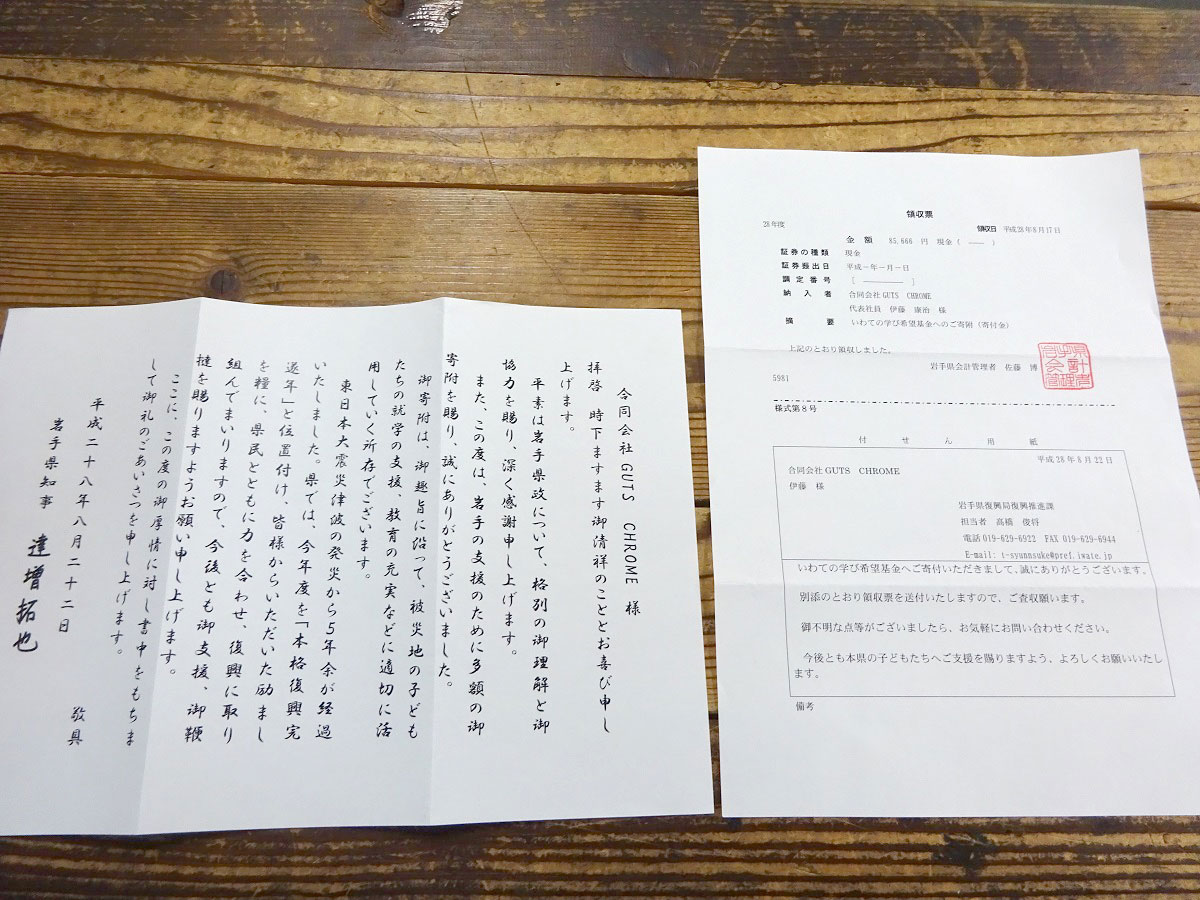 合同会社 GUTS CHROME 様
拝啓 時下ますます御清祥のこととお喜び申し
上げます。
平素は岩手県政について、格別の御理解と御
協力を賜り、深く感謝申し上げます。
また、この度は、岩手の支援のために多額の御
寄附を賜り、誠にありがとうございました。
御寄附は、御趣旨に沿って、被災地の子ども
たちの就学の支援、教育の充実などに適切に活
用していく所存でございます。
東日本大震災津波の発災から5年余が経過
いたしました。県では、今年度を「本格復興完
遂年」と位置付け、皆様からいただいた励まし
を糧に、県民とともに力を合わせ、復興に取り
組んでまいりますので、今後とも御支援、御鞭
撻を賜りますようお願い申し上げます。
ここに、この度の御厚情に対し書中をもちま
して御礼のごあいさつを申し上げます。
敬具
平成二十八年八月二十二日
岩手県知事 達増拓也
領収票
28年度
領収日 平成28年8月17日
金額 85,666 円 現金( ―― )
証券の種類 現金
証券振出日 平成－年－月－日
調定番号 [ ―――― ]
納入者 合同会社GUTS CHROME
代表社員 伊藤 康治 様
摘要 いわての学び希望基金へのご寄附(寄付金)
上記のとおり領収しました。
岩手県会計管理者 佐藤 博
5981
様式第8号
付せん用紙
平成28年8月22日
合同会社GUTS CHROME
伊藤 様
岩手県復興局復興推進課
担当者 高橋 俊将
電話019-629-6922 FAX 019-629-6944
E-mail: t-syunnsuke@pref.iwate.jp
いわての学び希望基金へご寄付いただきまして、誠にありがとうございます。
別添のとおり領収票を送付いたしますので、ご査収願います。
御不明な点等がございましたら、お気軽にお問い合わせください。
今後とも本県の子どもたちへご支援を賜りますよう、よろしくお願いいたし
ます。
備考